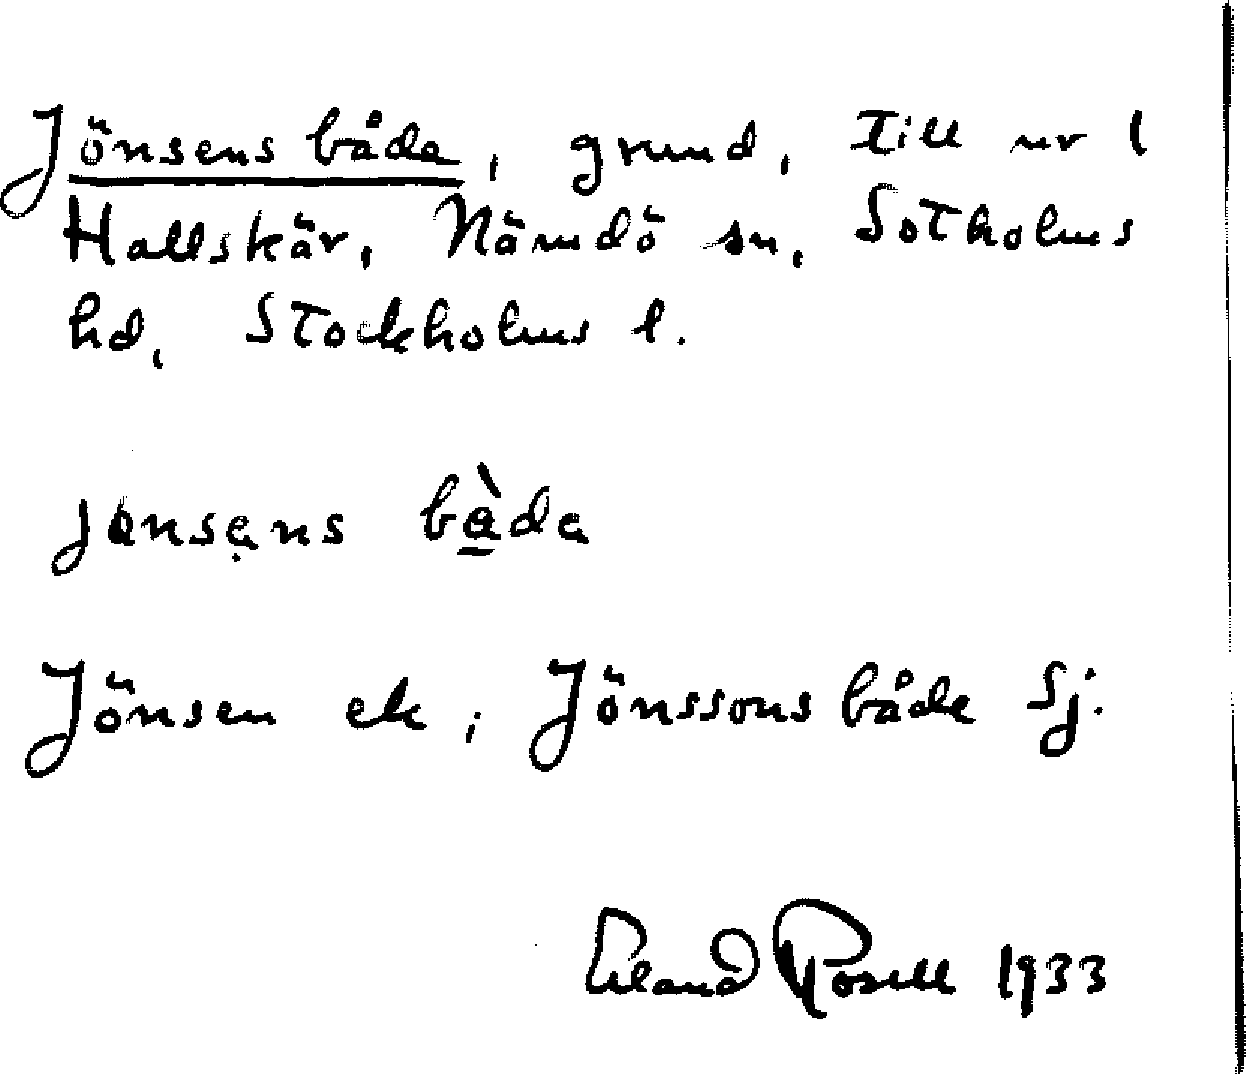 Jönsens båda, grund, till nr 1
Hallskär, Nämdö sn, Sotholms
hd, Stockholms l.
jɵnsẹns bà̲da
Jönsen ek; Jönssons både Sj.
Erland Rosell 1933